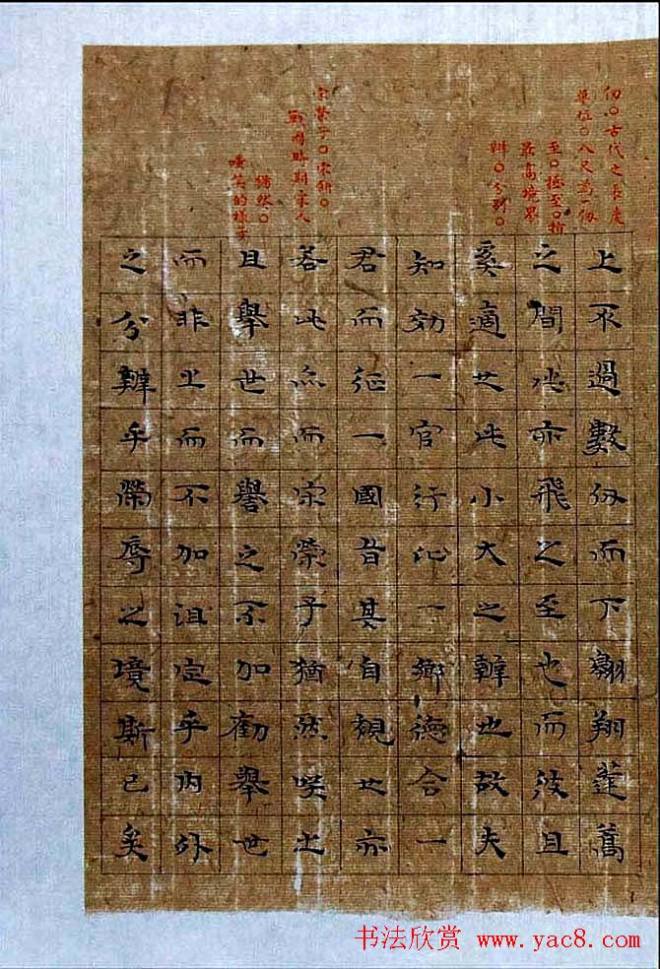 仞○古代之長度
單位○八尺為一仞
至○極至○指
最高境界
辨○分別○
宋榮子○宋鈃○
戰國時期宋人
猶然○
嗤笑的樣子
上不過數仞而下翱翔蓬蒿
之間此亦飛之至也而彼且
奚適也此小大之辨也故夫
知効一官行比一鄉德合一
君而征一國者其自視也亦
若此矣而宋榮子猶然笑之
且舉世而譽之不加勸舉世
而非之而不加沮定乎內外
之分辨乎榮辱之境斯已矣
书法欣赏 www.yac8.com